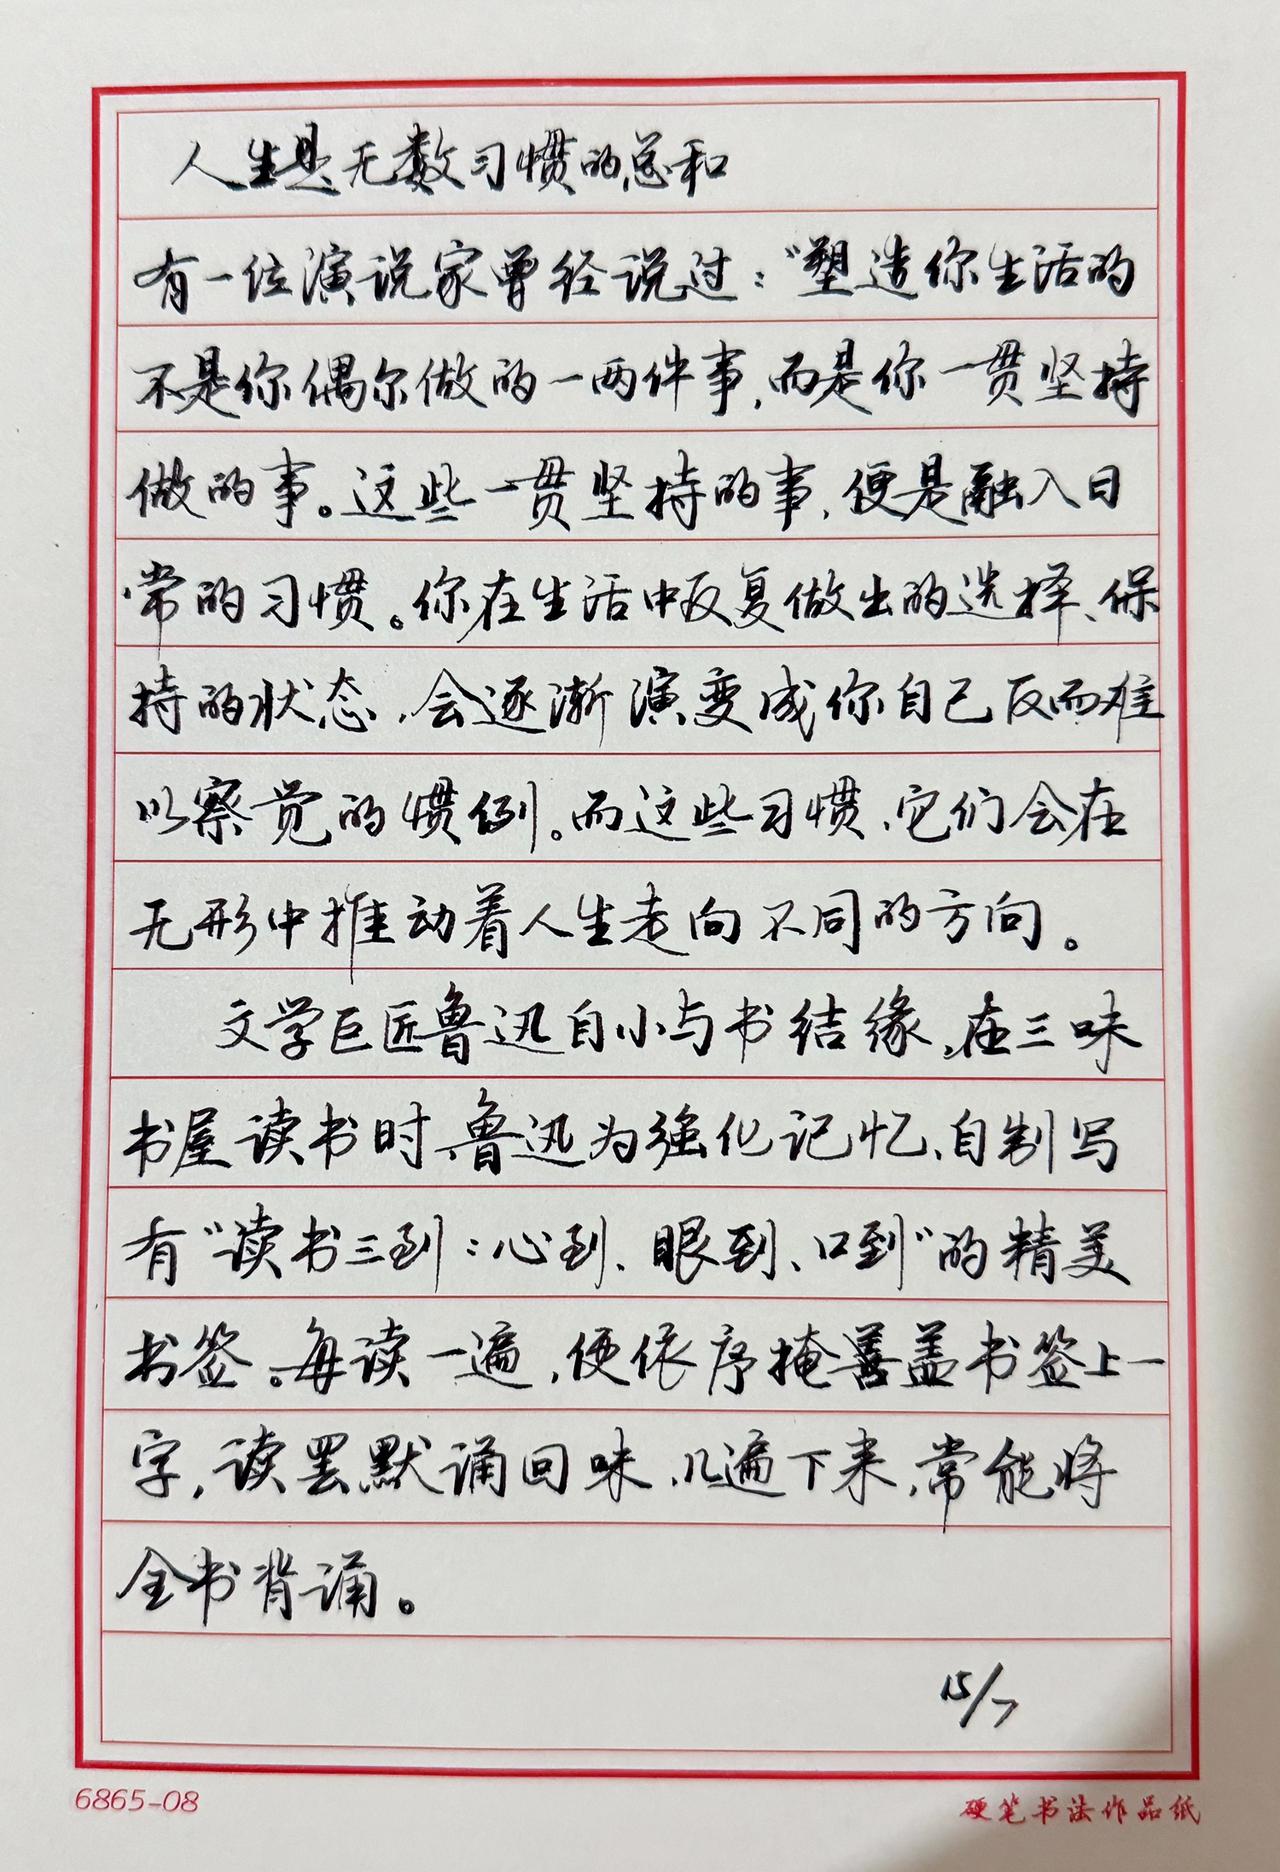 人生是无数习惯的总和
有一位演说家曾经说过：“塑造你生活的
不是你偶尔做的一两件事，而是你一贯坚持
做的事。这些一贯坚持的事，便是融入日
常的习惯。你在生活中反复做出的选择、保
持的状态，会逐渐演变成你自己反而难
以察觉的惯例。而这些习惯，它们会在
无形中推动着人生走向不同的方向。
文学巨匠鲁迅自小与书结缘，在三味
书屋读书时，鲁迅为强化记忆，自制写
有“读书三到：心到、眼到、口到”的精美
书签。每读一遍，便依序掩善盖书签上一
字，读罢默诵回味，几遍下来，常能将
全书背诵。
15/7
6865-08
硬笔书法作品纸